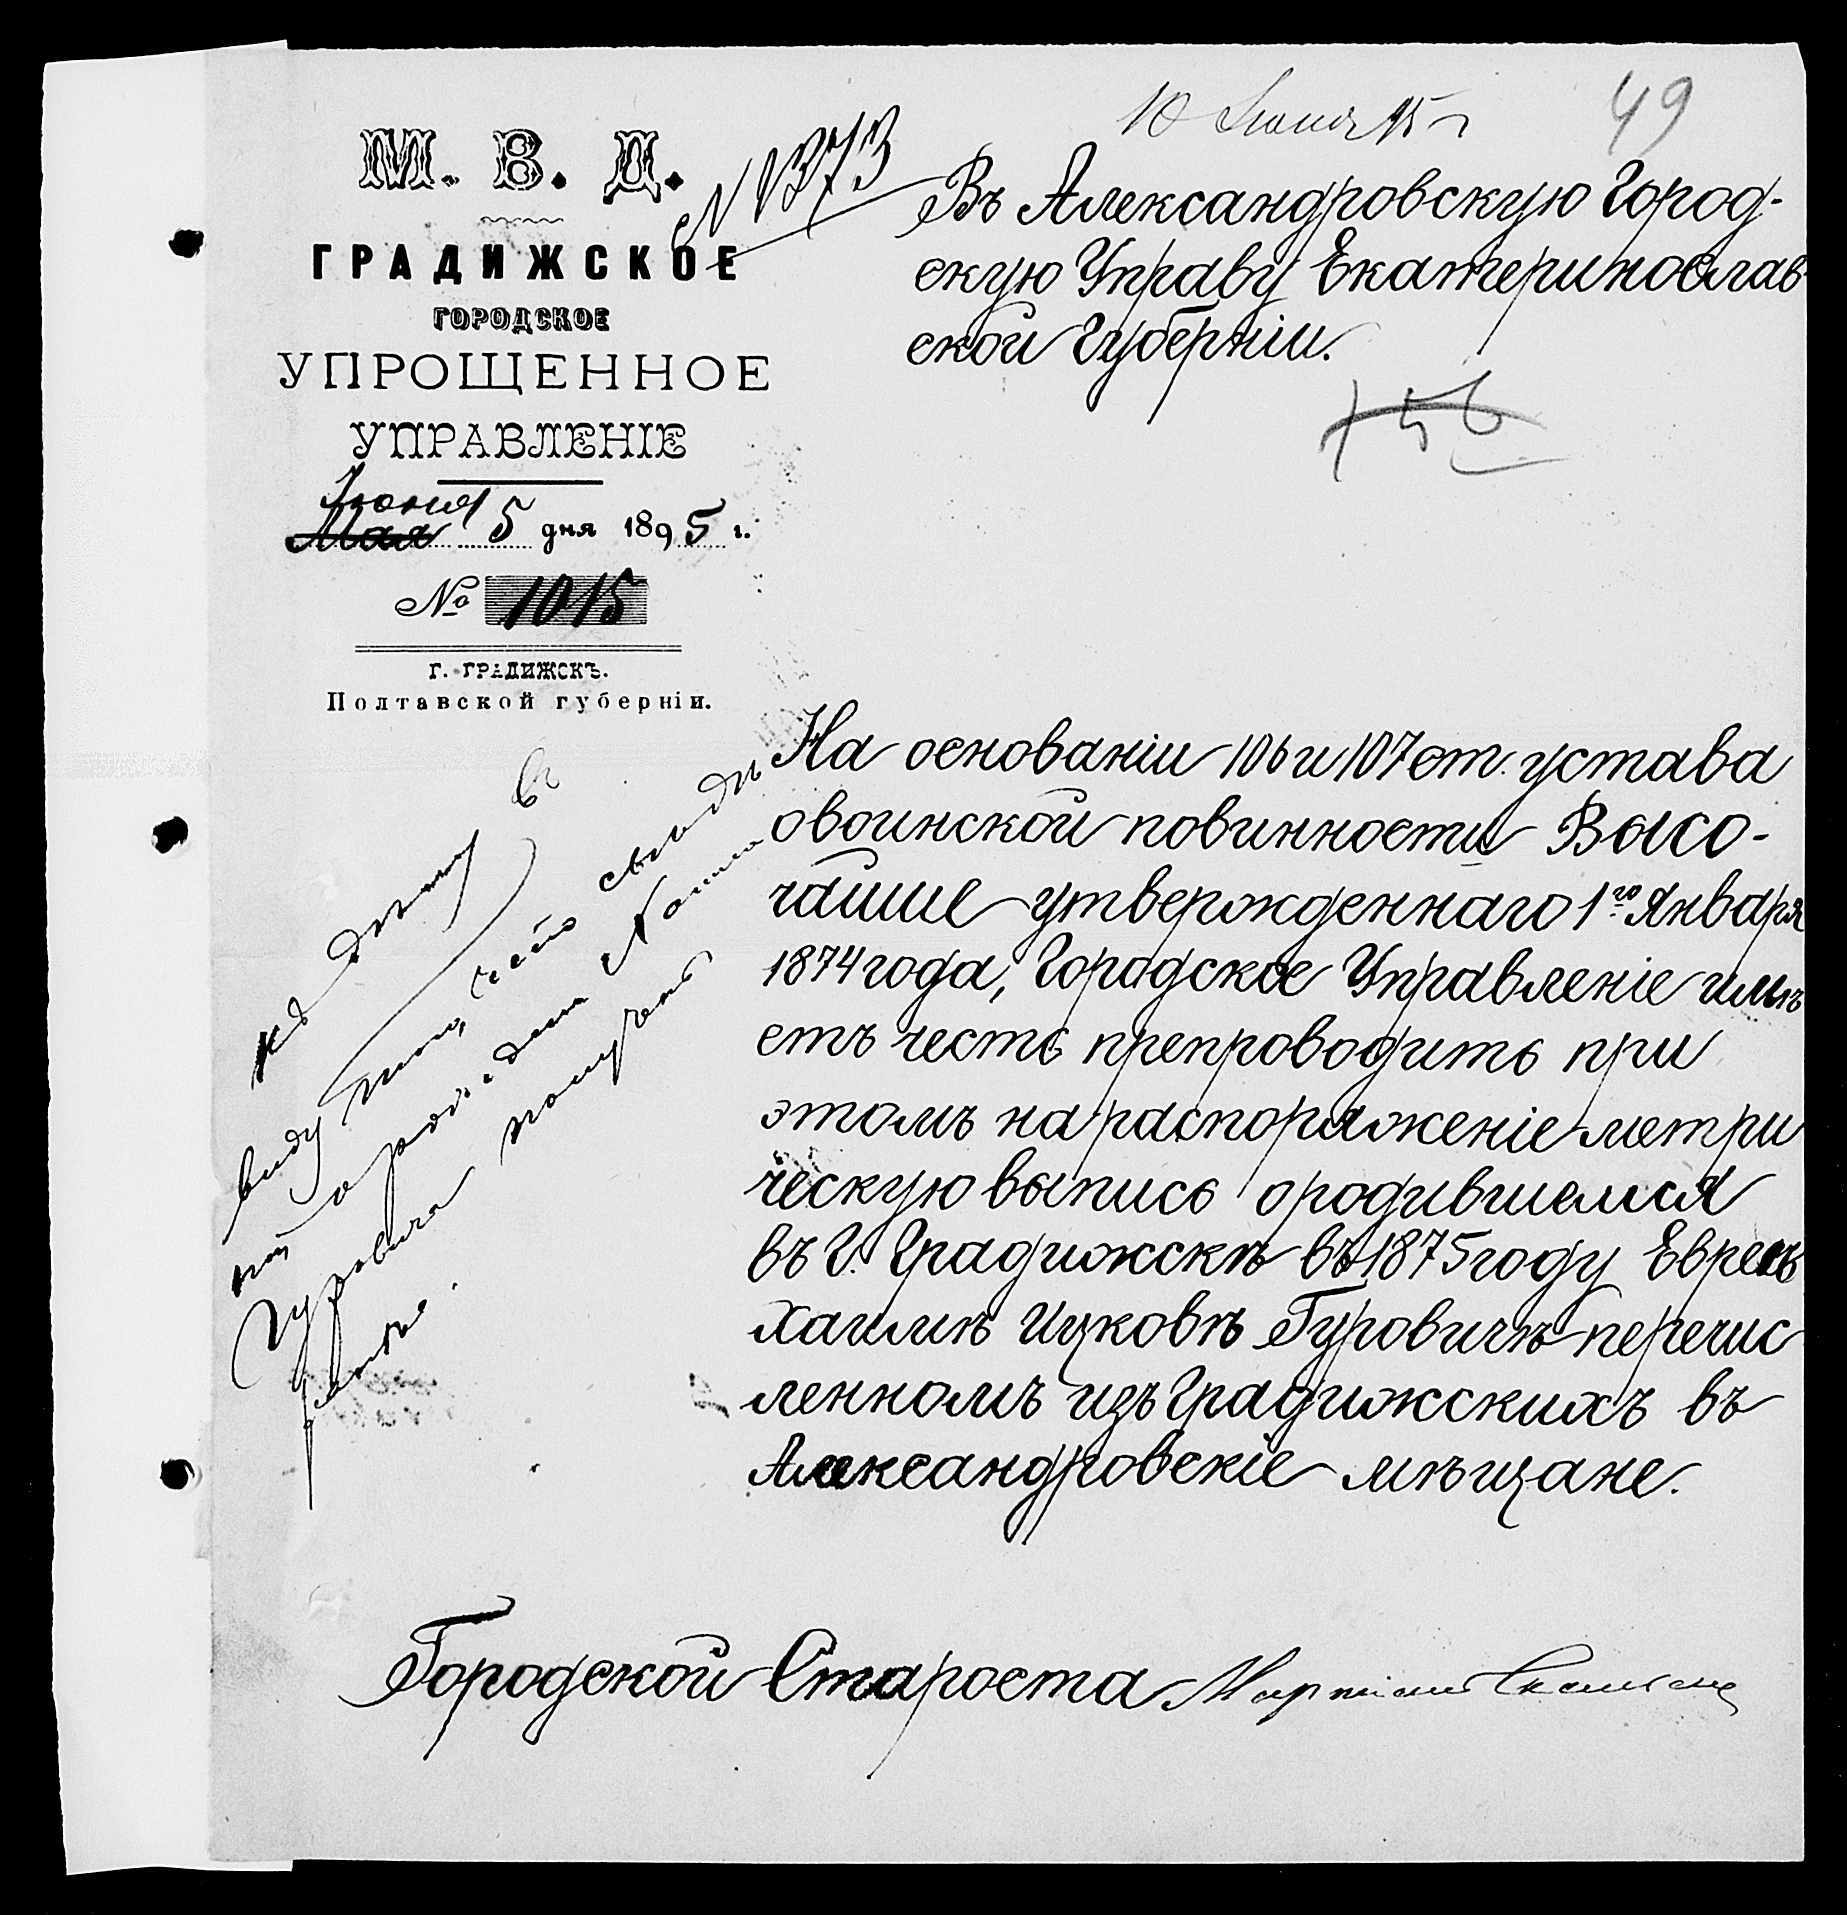 10 Іюня 95 г
49
М. В. Д.
№ 1373
ГРАДИЖСКОЕ
ГОРОДСКОЕ
УПРОЩЕННОЕ
УПРАВЛЕНІЕ
Іюня
Мая 5 дня 1895 г.
№ 1015
Г. ГРАДИЖСКЪ.
Полтавской губерніи.
Въ Александровскую Город-
скую Управу Екатеринослав
ской Губерніи.
На основаніи 106 и 107 ст. устава
о воинской повинности Высо-
чайше утвержденнаго 1го Января
1874 года, Городское Управленіе имѣ
етъ честь препроводить при
этомъ на распоряженіе метри
ческую выпись о родившемся
въ г. Градижскѣ въ 1875 году Евреѣ
Хаимѣ Ицковѣ Гуровичѣ перечис
ленномъ изъ Градижскихъ въ
Александровскіе мѣщане.
къ дѣлу въ
виду того, что
о рожденіи
Гуровича
Городской Староста